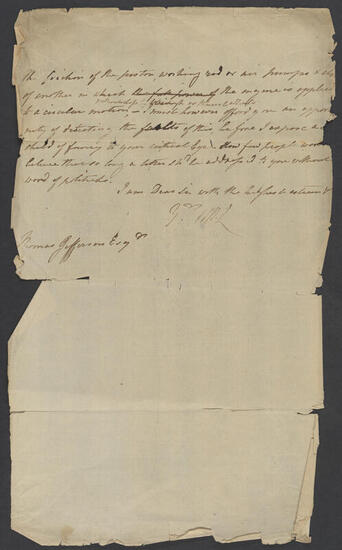 the friction of the piston working rod or
of another in which the full power of the engine is applied
to a circular motion, - I must however afford you an oppor
tunity of detecting the faults of this before I expose a
thread of fearing to your critical Eye. How few people would
believe that so long a letter sh.d be address'd to you without a
word of politicks.
I am Dear Sir with the highest esteem &
Thomas Jefferson Esq.r